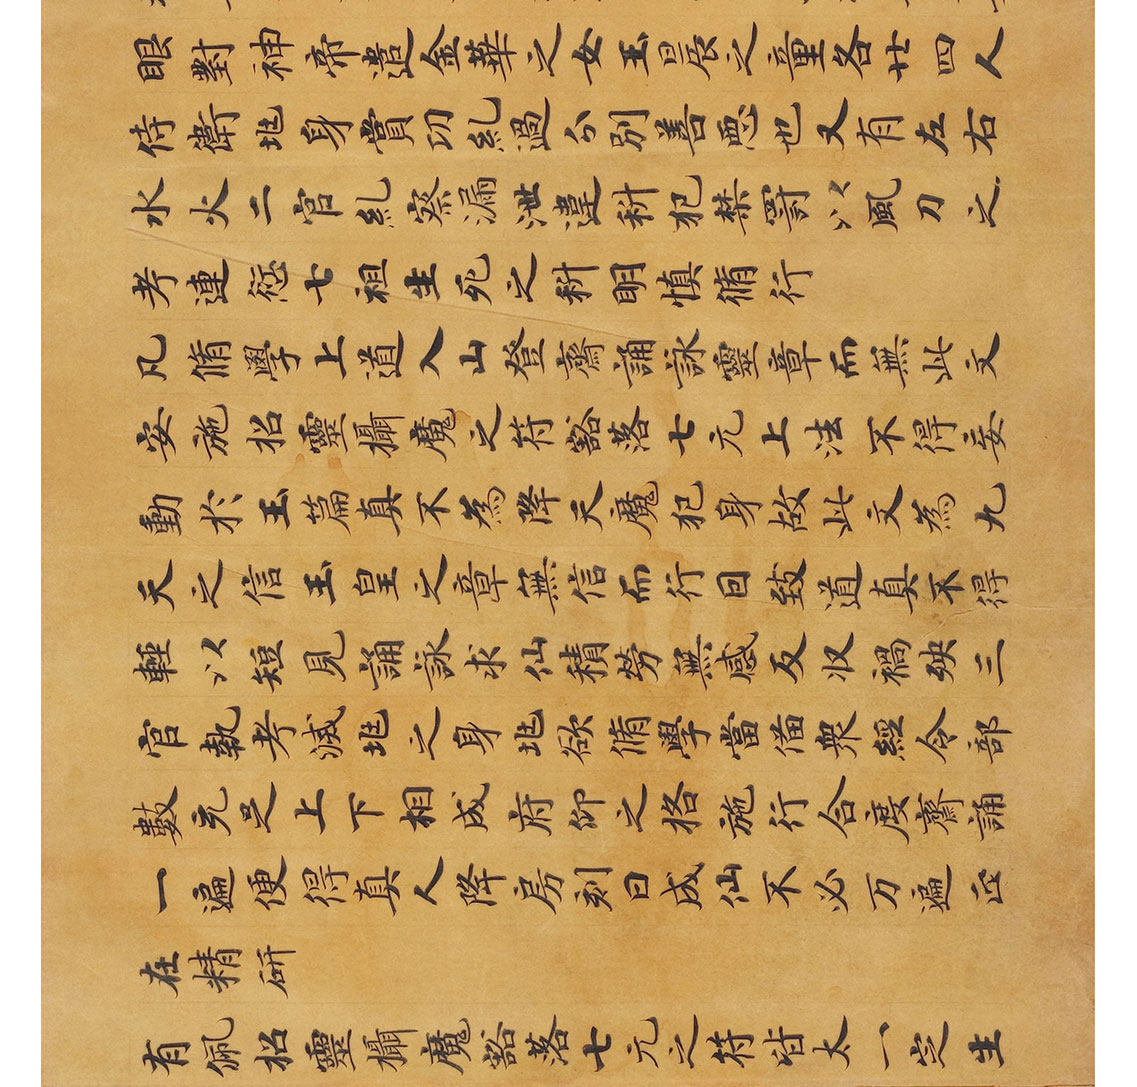 眼對神帝遣金華之女玉晨之童各廿四人
侍衛兆身賞功糺過分別善惡也又有左右
水火二官糺察漏泄違科犯禁罰以風刀之
考連愆七祖生死之科明慎脩行
凡脩學上道入山登齋誦詠靈章而無此文
安施招靈攝魔之符豁落七元上法不得妄
動於玉篇真不為降天魔犯身故此文為九
天之信玉皇之章無信而行回致道真不得
輕以短見誦詠求仙積勞無感反収禍殃三
官執考滅兆之身兆欲脩學當備衆經令部
數充足上下相成府仰之格施行合度齋誦
一遍便得真人降房刻日成仙不必万遍
在精研
有佩招靈攝魔豁落七元之符皆太一定生